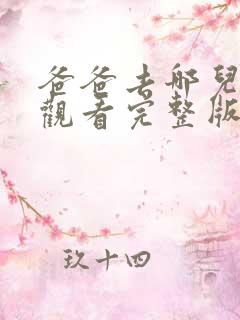 爸爸去哪兒
觀看完整版
玖十四